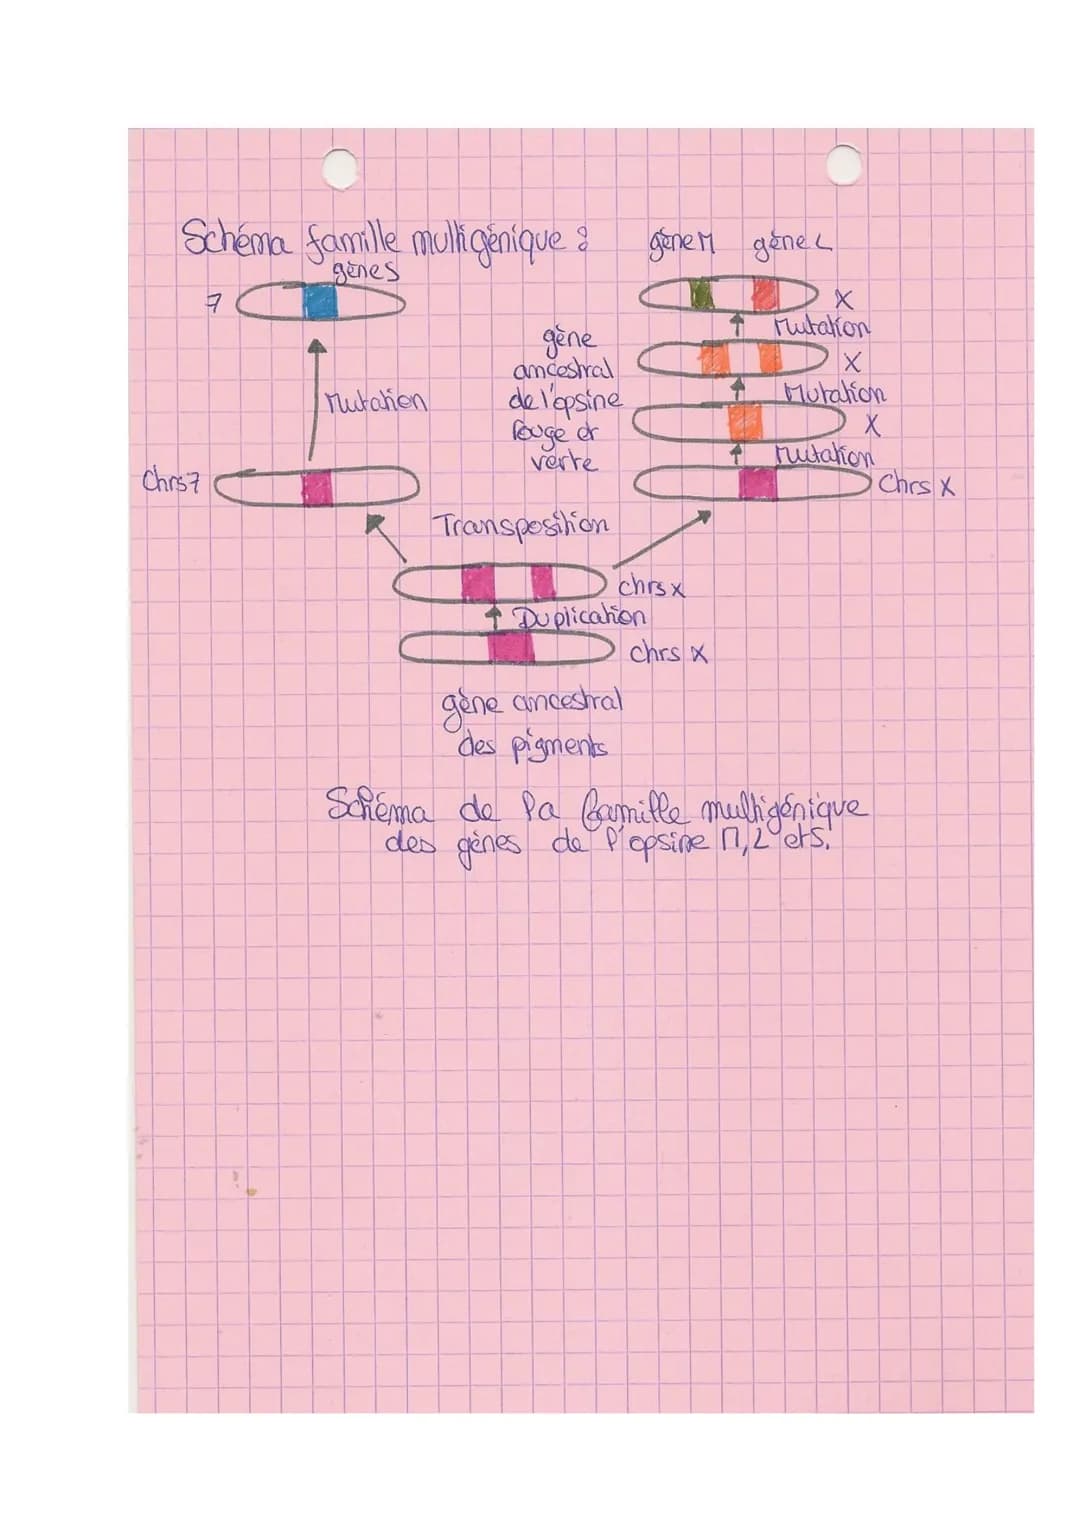 Schéma famille multigénique :
gène M gène L
gène S
7
X
Mutation
gène
ancestral
de l'opsine
rouge et
verte
X
Mutation
Mutation
X
Mutation
Chrs 7
Chrs X
Transposition
chrs x
Duplication
chrs x
gène ancestral
des pigments
Schéma de la famille multigénique
des gènes de l'opsine M, L et S.